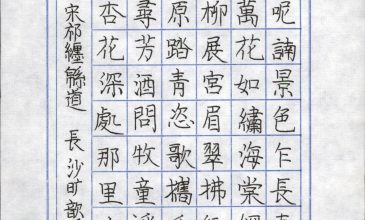 呢諵景色乍長
萬花如繡海棠
柳展宮眉翠拂
原踏青恣歌攜
尋芳酒問牧童
杏花深處那里
宋祁纏緜道 長沙旷